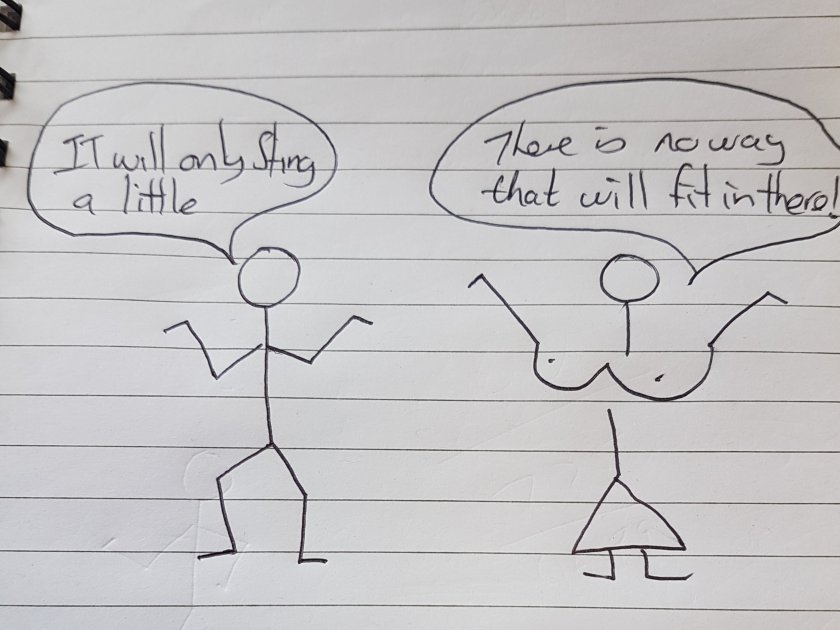 IT will only Sting
a little
There is no way
that will fit in there!